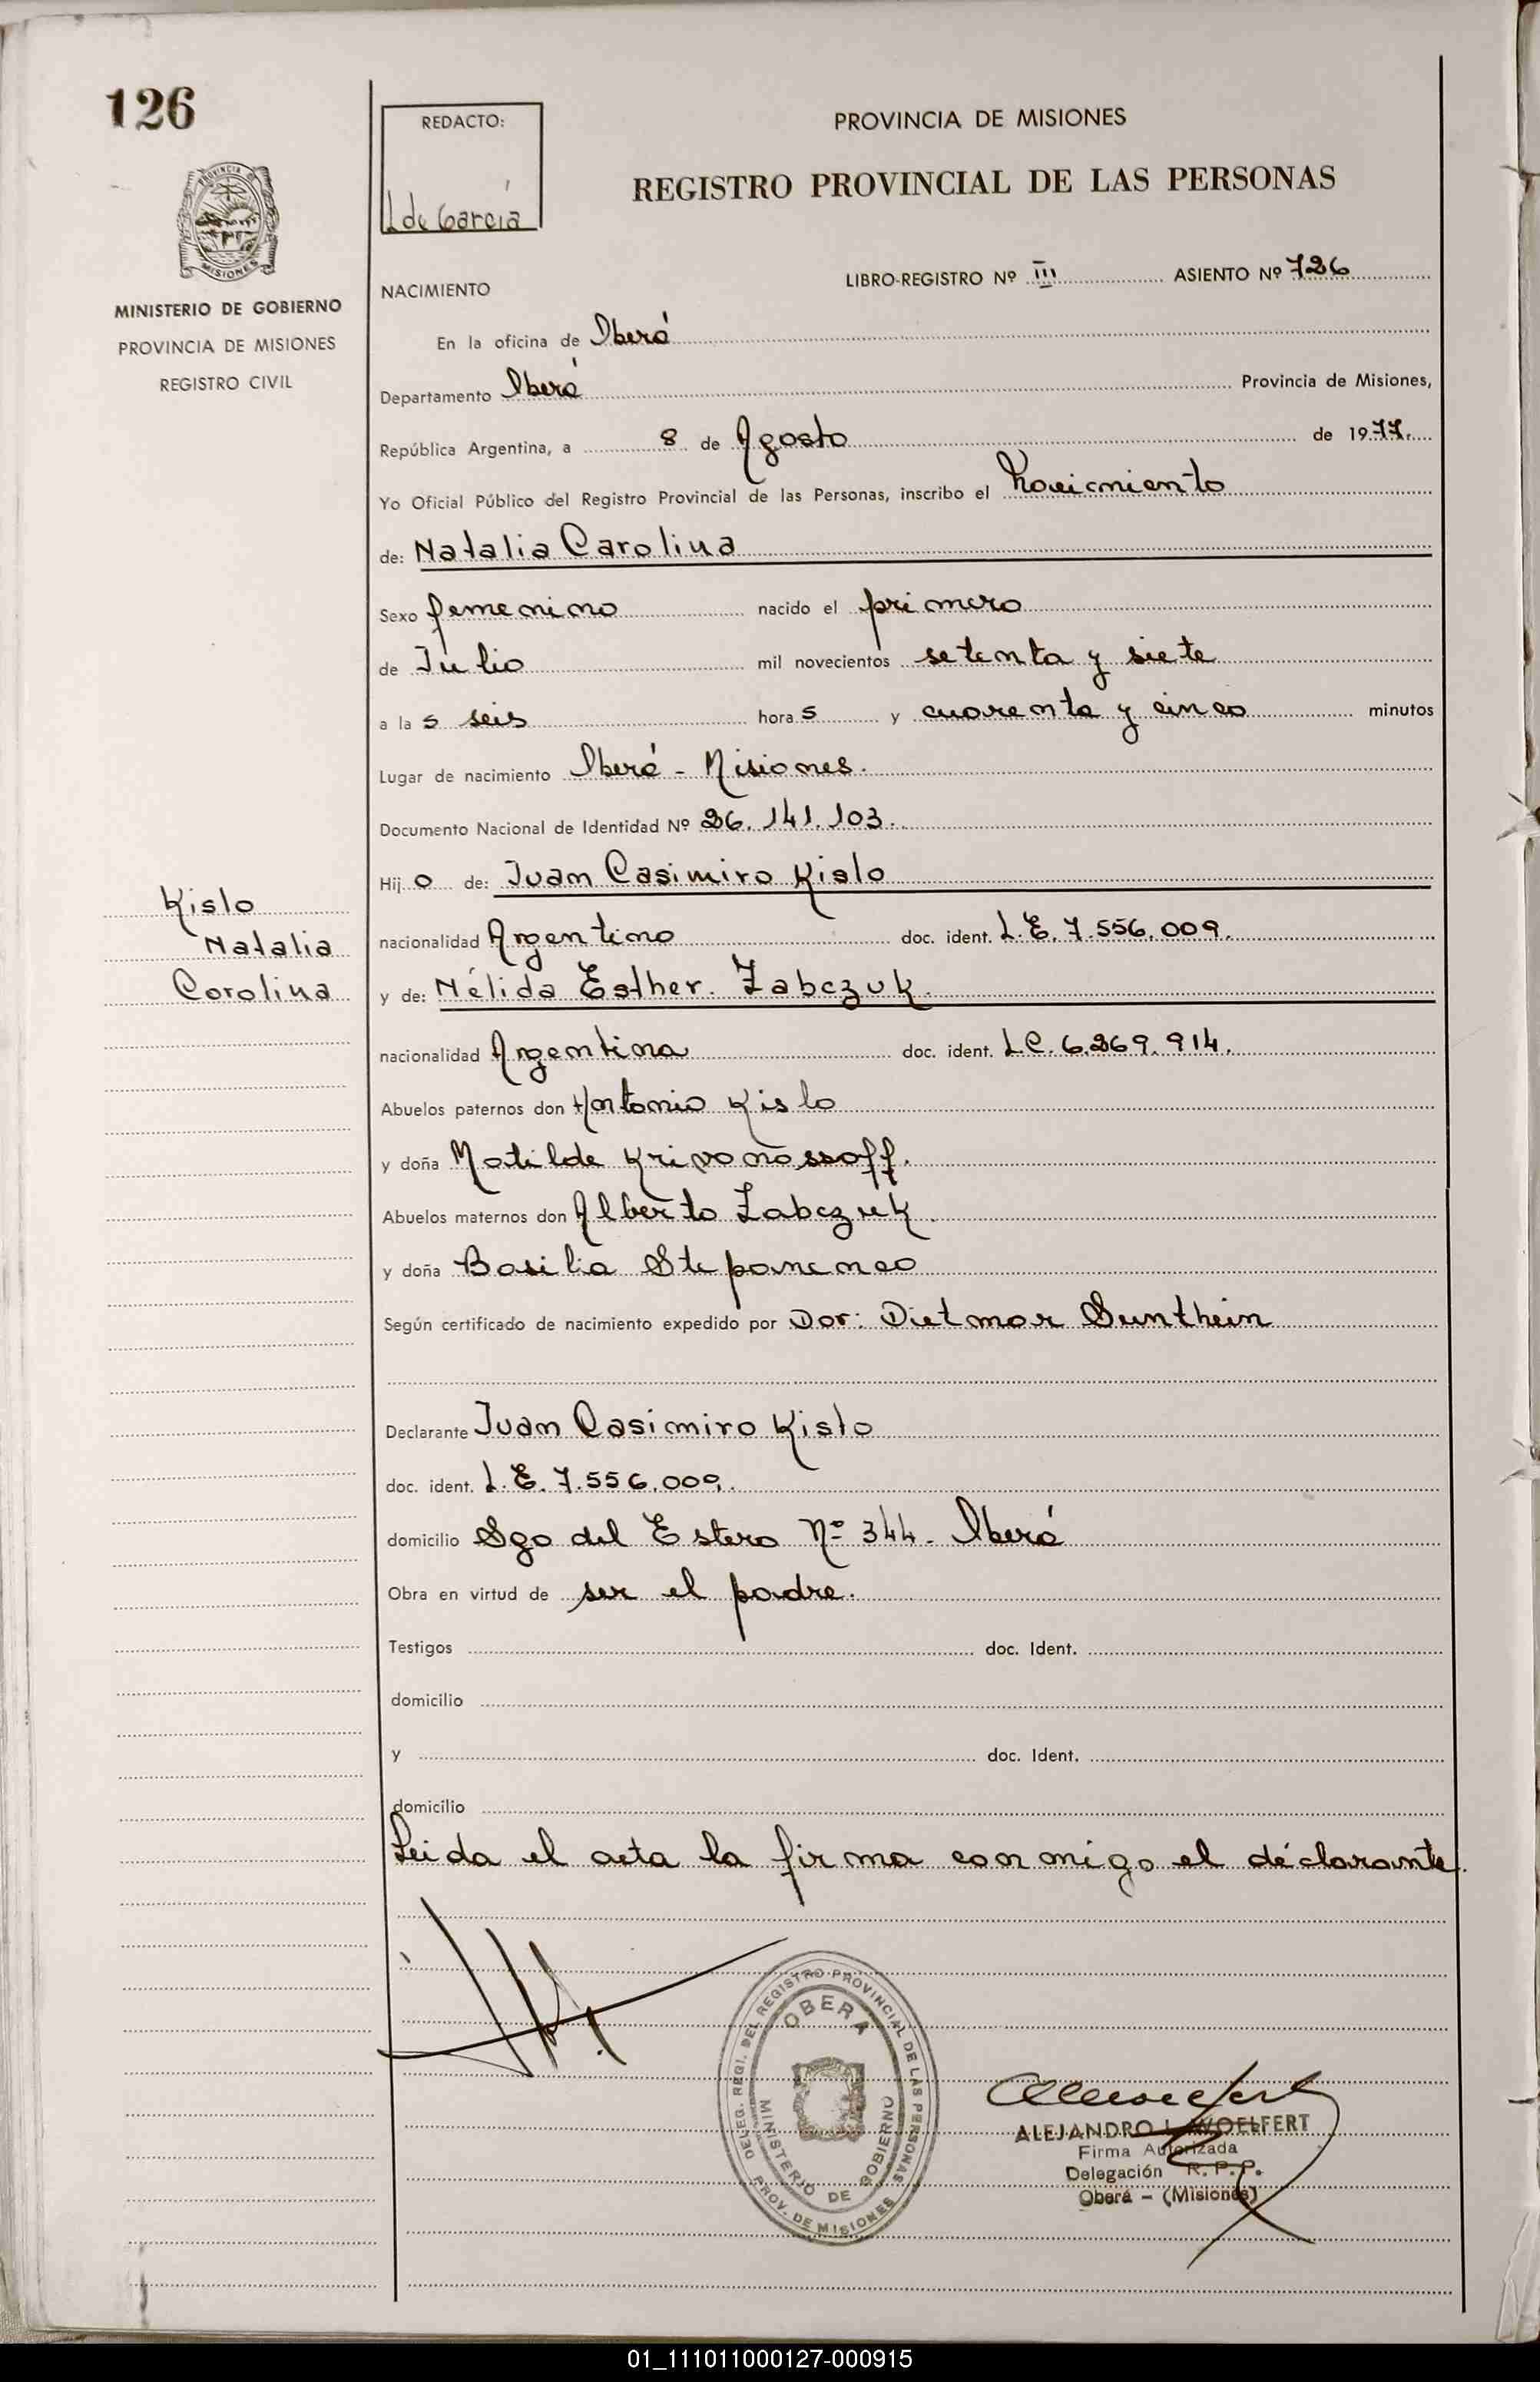 126
REDACTO:
L de García
PROVINCIA DE MISIONES
REGISTRO PROVINCIAL DE LAS PERSONAS
PROVINCIA DE
MISIONES
MINISTERIO DE GOBIERNO
PROVINCIA DE MISIONES
REGISTRO CIVIL
LIBRO-REGISTRO Nº III ASIENTO Nº 726
NACIMIENTO
En la oficina de Oberá
Departamento Oberá Provincia de Misiones,
República Argentina, a 8 de Agosto de 1977.
Yo Oficial Público del Registro Provincial de las Personas, inscribo el Nacimiento
de: Natalia Carolina
Sexo femenino nacido el primero
de Julio mil novecientos setenta y siete
a la s seis hora s y cuarenta y cinco minutos
Lugar de nacimiento Oberá - Misiones.
Documento Nacional de Identidad Nº 26.141.103.
Hij o de: Juan Casimiro Kislo
nacionalidad Argentino doc. ident. L.E. 7.556.009.
y de: Nélida Esther. Zabczuk.
nacionalidad Argentina doc. ident. L.C. 6.269.914.
Abuelos paternos don Antonio Kislo
y doña Matilde Krivonossoff.
Abuelos maternos don Alberto Zabczuk.
y doña Basilia Stepanenco
Según certificado de nacimiento expedido por Dor: Dietmar Sunthein
Kislo
Natalia
Carolina
Declarante Juan Casimiro Kislo
doc. ident. L.E. 7.556.009.
domicilio Sgo del Estero Nº 344. Oberá
Obra en virtud de ser el padre.
Testigos doc. Ident.
domicilio
y doc. Ident.
domicilio
Leida el acta la firma conmigo el déclarante.
DELEG. REGI. DEL REGISTRO PROVINCIAL DE LAS PERSONAS
OBERA
MINISTERIO DE GOBIERNO
PROV. DE MISIONES
ALEJANDRO L. WOELFERT
Firma Autorizada
Delegación R. P. P.
Oberá - (Misiones)
01_111011000127-000915